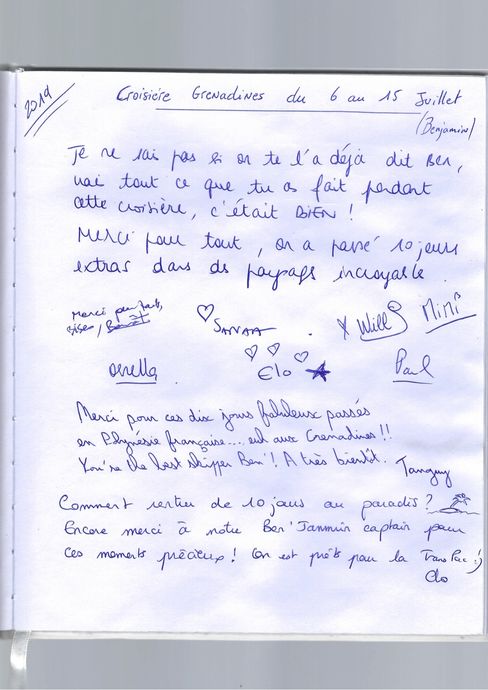 2019
Croisière Grenadines du 6 au 15 Juillet
(Benjamin)
Je ne sais pas si on te l'a déjà dit Ben,
mai tout ce que tu as fait pendant
cette croisière, c'était BIEN !
Merci pour tout, on a passé 10 jours
extras dans des paysages incroyable
Merci pour tout,
bises,
SANAA
x Will
Mini
Ornella
Elo
Paul
Merci pour ces dix jours fabuleux passés
en Polynésie française... euh aux Grenadines !!
You're the best skipper Ben' ! A très bientôt. Tanguy
Comment revenir de 10 jours au paradis ?
Encore merci à notre Ben'Janmin captain pour
ces moments précieux ! On est prêts pour la TransPac :)
Clo